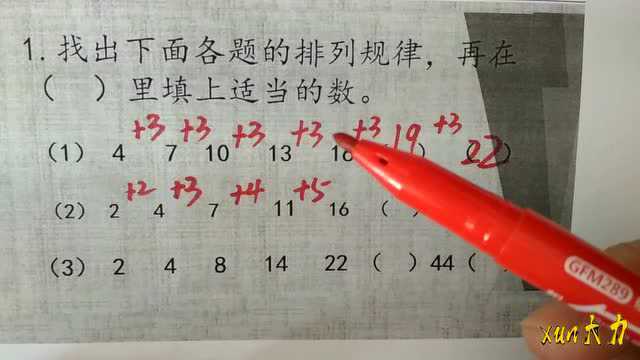 1. 找出下面各题的排列规律，再在
（ ）里填上适当的数。
+3 +3 +3 +3 +3 +3
（1） 4 7 10 13 16 （19） （22）
+2 +3 +4 +5
（2） 2 4 7 11 16 （
（3） 2 4 8 14 22 （ ）44（
GFM289
xun大力